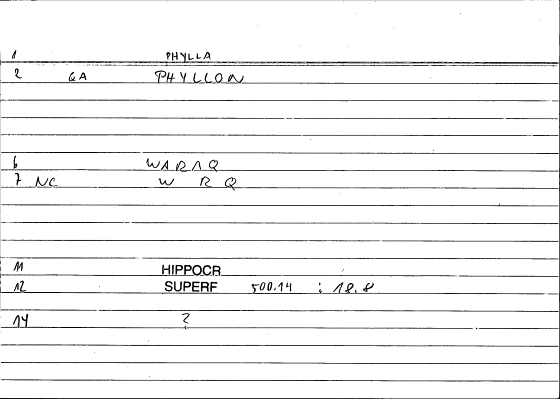 1 PHYLLA
2 GA PHYLLON
6 WARAQ
7 NC W R Q
11 HIPPOCR
12 SUPERF 500.14 : 18.8
14 ?